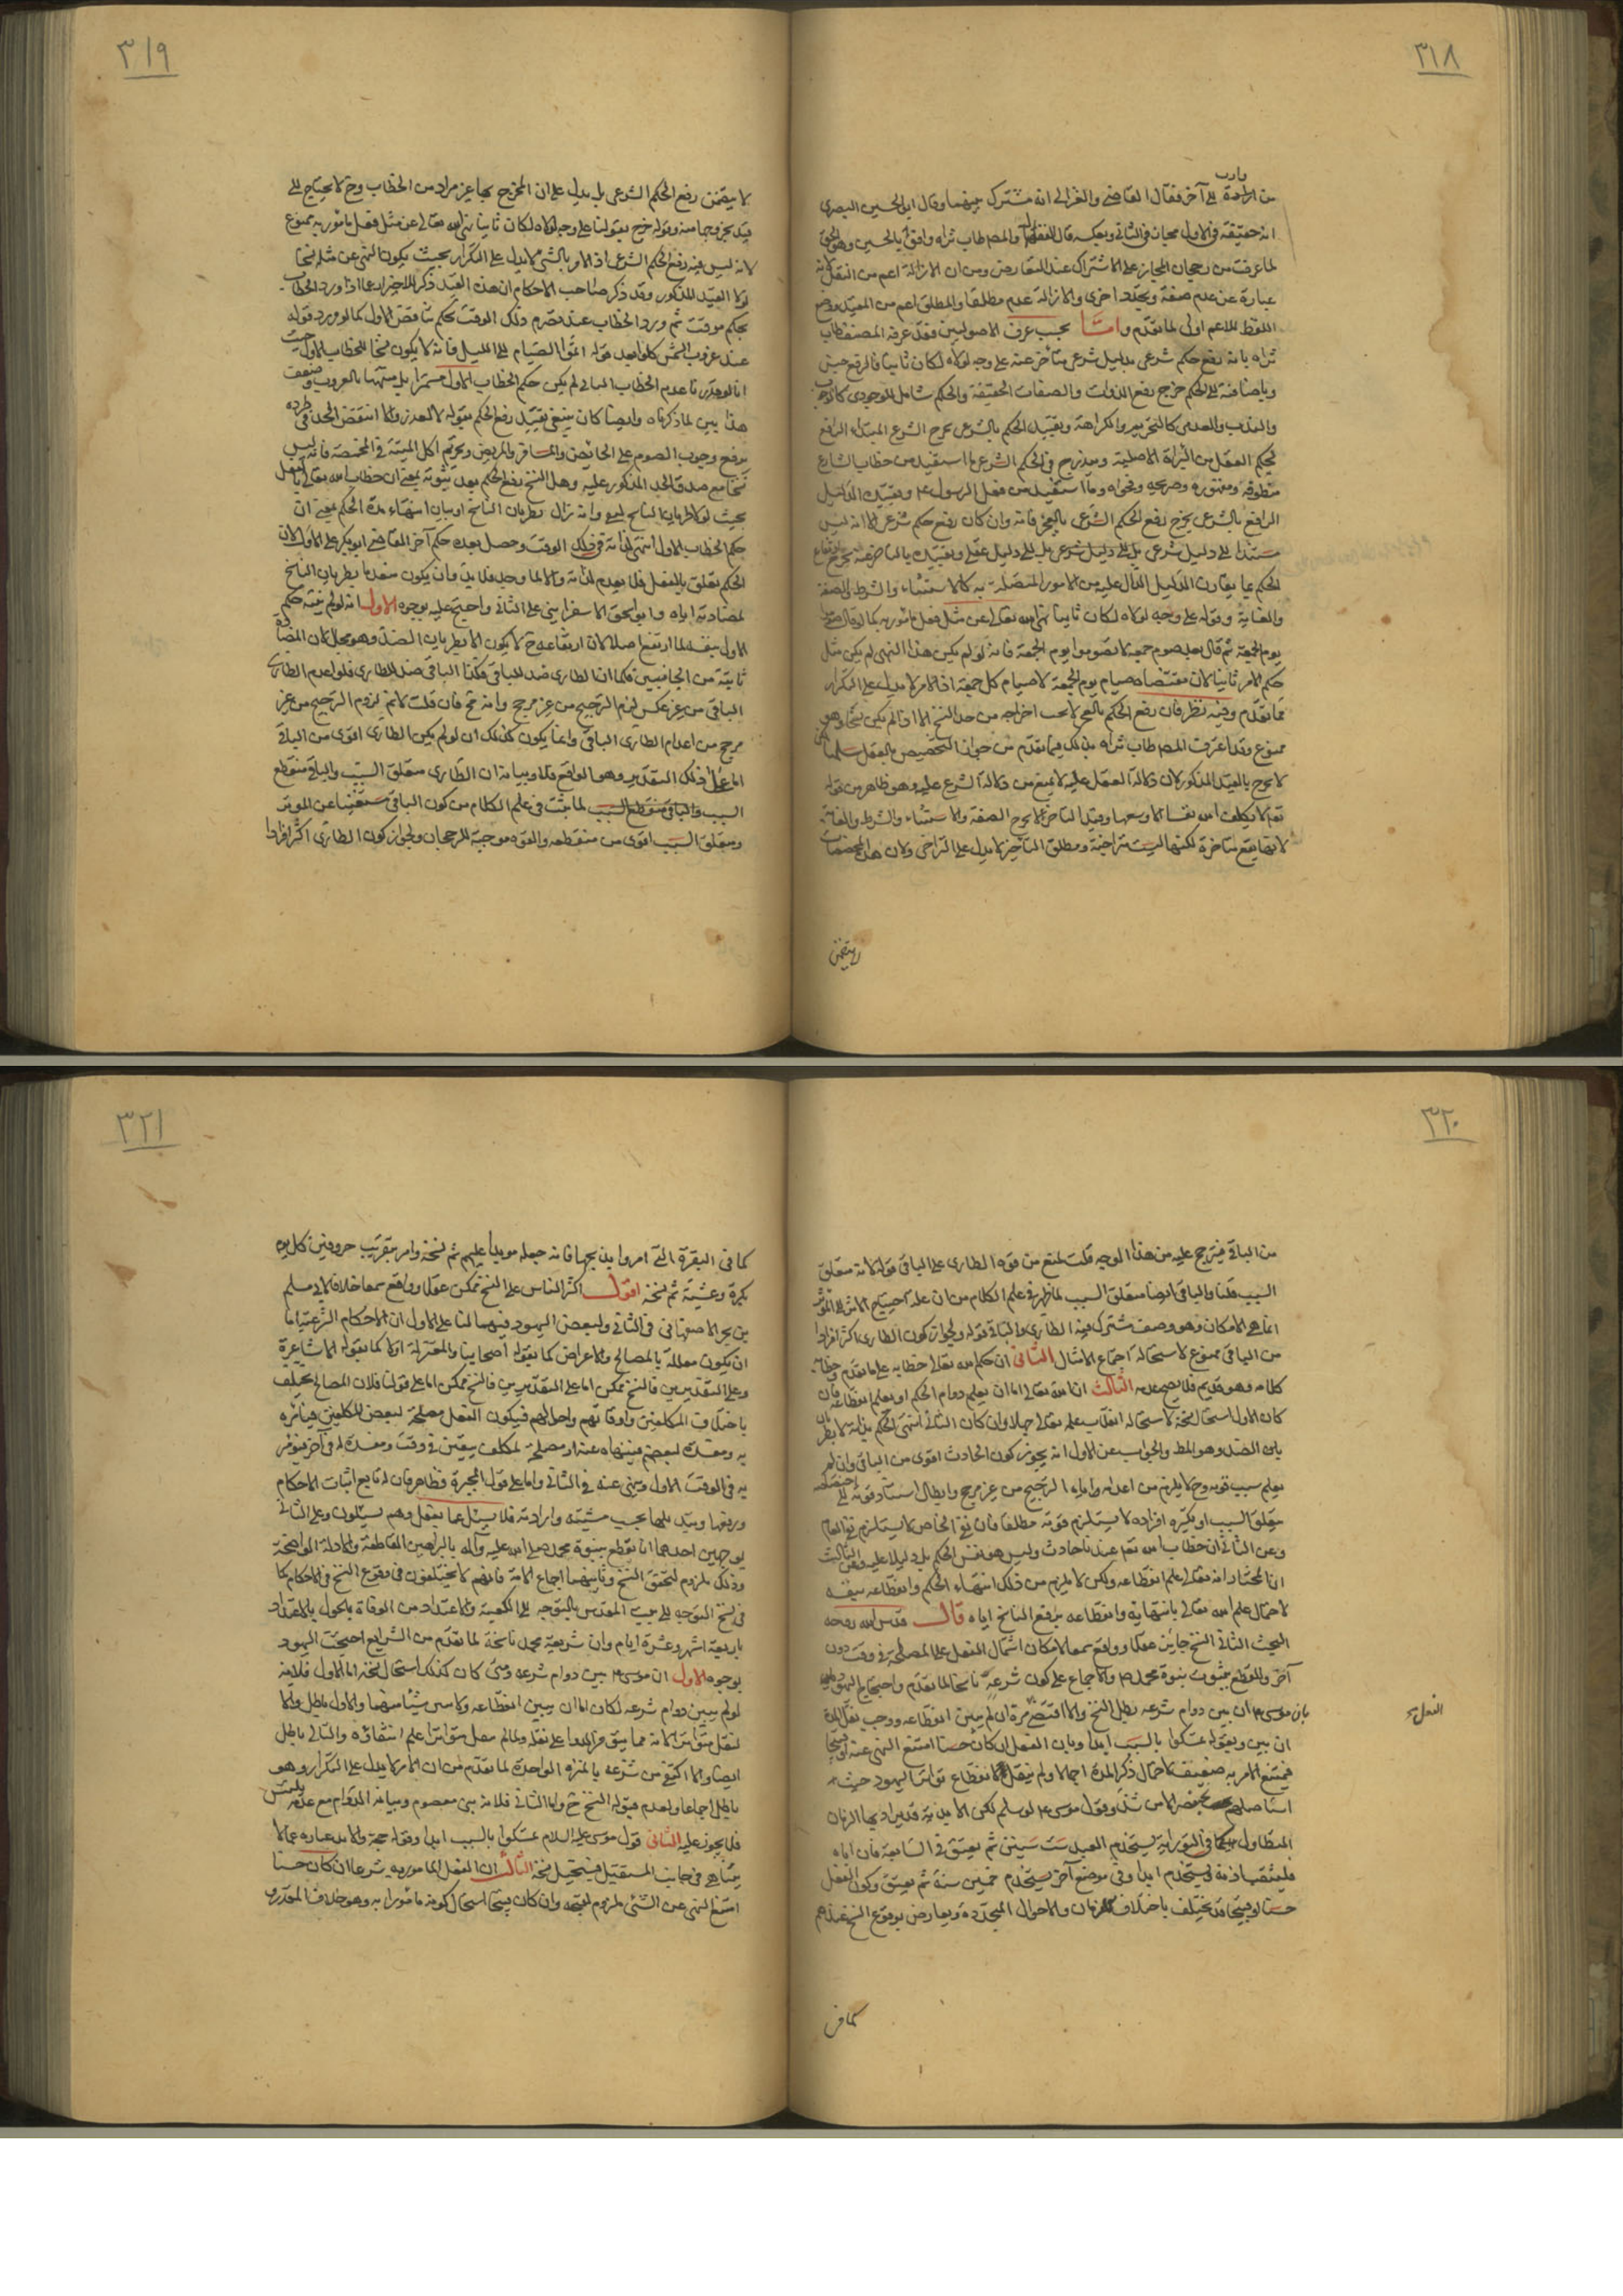 ٣١٨
وارث
من الجدة الى آخر فقال القاضي والغزالي انه مشترك بينهما وقال ابو الحسين البصري
انه حقيقة في الاول مجاز في الثاني وبعكسه قال القفال والمصنف طاب ثراه وافق ابا الحسين وهو الحق
لما عرفت من رجحان المجاز على الاشتراك عند التعارض ومن ان الازالة اعم من النقل لانه
عبارة عن عدم صفة وتجدد اخرى والازالة عدم مطلقا والمطلق اعم من المقيد ووضع
اللفظ للاعم اولى لما تقدم واما بحسب عرف الاصوليين فقد عرفه المصنف طاب
ثراه بانه رفع حكم شرعي بدليل شرعي متأخر عنه على وجه لولاه لكان ثابتا فالرفع جنس
وباضافته الى الحكم خرج رفع الذوات والصفات الحقيقية والحكم شامل للوجودي كالوجوب
والندب والعدمي كالتحريم والكراهة وتقييد الحكم بالشرعي يخرج الشرع المبتدأ الرافع
لحكم العقل من البراءة الاصلية ويندرج في الحكم الشرعي ما استفيد من خطاب الشارع
منطوقه ومفهومه وصريحه وفحواه وما استفيد من فعل الرسول ع وتقييد الدليل
الرافع بالشرعي يخرج رفع الحكم الشرعي بالعجز فانه وان كان رفع حكم شرعي الا انه ليس
مستندا الى دليل شرعي بل الى دليل عقلي وتقييده بالمتأخر عنه يخرج ارتفاع
الحكم بما يقارن الدليل الدال عليه من الامور المتصلة به كالاستثناء والشرط والصفة
والغاية وقوله على وجه لولاه لكان ثابتا نهي الله تعالى عن مثل فعل مأمور به كما لو قال صوموا
يوم الجمعة ثم قال بعد صوم جمعة لا تصوموا يوم الجمعة فانه لو لم يكن هذا النهي لم يكن مثل
حكم الامر ثابتا لان مقتضاه صيام يوم الجمعة لا صيام كل جمعة اذ الامر لا يدل على التكرار
مما تقدم وفيه نظر فان رفع الحكم بالعجز لا يجب اخراجه من حد النسخ الا اذا لم يكن نسخا وهو
ممنوع وقد اعترف المصنف طاب ثراه بذلك فيما تقدم من جواز التخصيص بالعقل سلمنا لكن
لا يخرج بالقيد المذكور لان دلالة العقل عليه لا يمنع من دلالة الشرع عليه وهو ظاهر من قوله
تعالى لا يكلف الله نفسا الا وسعها وقيد التأخر لا يخرج الصفة والاستثناء والشرط والغاية
لانها تقع متأخرة لكنها ليست متراخية ومطلق التأخير لا يدل على التراخي ولان هذه المخصصات
لا يتضمن
٣١٩
لا يتضمن رفع الحكم الشرعي بل يدل على ان المخرج بها غير مراد من الخطاب وح لا يحتاج الى
قيد يخرجها منه وقوله خرج بقولنا على وجه لولاه لكان ثابتا نهي الله تعالى عن مثل فعل مأمور به ممنوع
لانه ليس فيه رفع الحكم الشرعي اذ الامر بالشيء لا يدل على التكرار بحيث يكون النهي عن مثله نسخا
لولا القيد المذكور وقد ذكر صاحب الاحكام ان هذا القيد ذكر للاحتراز عما اذا ورد الخطاب
بحكم موقت ثم ورد الخطاب عند تصرم ذلك الوقت بحكم يناقض الاول كما لو ورد قوله
عند غروب الشمس كلوا بعد قوله اتموا الصيام الى الليل فانه لا يكون نسخا للخطاب الاول حيث
انا لو قدرنا عدم الخطاب الثاني لم يكن حكم الخطاب الاول مستمرا بل منتهيا بالغروب وضعف
هذا يبين لما ذكرناه وايضا كان ينبغي تقييد رفع الحكم بقوله لا لعذر والا انتقض الحد في طرده
برفع وجوب الصوم على الحائض والمسافر والمريض وتحريم اكل الميتة في المخمصة فانه ليس
نسخا مع صدق الحد المذكور عليه وهل النسخ رفع الحكم بعد ثبوته بمعنى ان خطاب الله تعالى بالفعل
بحيث لولا طريان الناسخ لبقي وانه زال بطريان الناسخ او بيان انتهاء مدة الحكم بمعنى ان
حكم الخطاب الاول انتهى لذاته في ذلك الوقت وحصل بعده حكم آخر القاضي ابو بكر على الاول لان
الحكم تعلق بالفعل فلا يعدم لذاته والا لما وجد فلا بد وان يكون منعدما بطريان الناسخ
لمضادته اياه وابو اسحق الاسفرايني على الثاني واحتج عليه بوجوه الاول انه لو لم ينته حكم
الاول بنفسه لما ارتفع اصلا لان ارتفاعه ح لا يكون الا بطريان الضد وهو محال لان المضادة
ثابتة من الجانبين فكما ان الطاري ضد للباقي فكذا الباقي ضد للطاري فلو اعدم الطاري
الباقي من غير عكس لزم الترجيح من غير مرجح وانه مح فان قلت لا نم لزوم الترجيح من غير
مرجح من اعدام الطاري الباقي وانما يكون كذلك ان لو لم يكن الطاري اقوى من الباقي
اما على ذلك التقدير وهو الواقع فلا وبيانه ان الطاري متعلق السبب والباقي منقطع
السبب والباقي منقطع السبب لما ثبت في علم الكلام من كون الباقي مستغنيا عن المؤثر
ومتعلق السبب اقوى من منقطعه والقوة موجبة للرجحان ولجواز كون الطاري اكثر افرادا
٣٢٠
من الباقي فيترجح عليه من هذا الوجه قلت نمنع من قوة الطاري على الباقي قوله لانه متعلق
السبب قلنا والباقي ايضا متعلق السبب لما ظهر في علم الكلام من ان علة احتياج الاثر الى المؤثر
انما هي الامكان وهو وصف مشترك بين الطاري والباقي قوله ولجواز كون الطاري اكثر افرادا
من الباقي ممنوع لاستحالة اجتماع الامثال الثاني ان حكم الله تعالى خطابه على ما تقدم وخطابه
كلامه وهو قديم فلا يصح عدمه الثالث ان الله تعالى اما ان يعلم دوام الحكم او يعلم انقطاعه فان
كان الاول استحال نسخه لاستحالة انقلاب علمه تعالى جهلا وان كان الثاني انتهى الحكم بذاته لا بطر
يان الضد وهو المط والجواب عن الاول انه يجوز كون الحادث اقوى من الباقي وان لم
يعلم سبب قوته وح لا يلزم من اعدامه اياه الترجيح من غير مرجح وابطال استناد قوته الى
متعلق السبب او بكثرة افراده لا يستلزم قوته مطلقا فان نفي الخاص لا يستلزم نفي العام
وعن الثاني ان خطاب الله تعم عندنا حادث وليس هو نفس الحكم بل دليلا عليه وعن الثالث
انا نختار انه تعالى علم انقطاعه ولكن لا يلزم من ذلك انتهاء الحكم وانقطاعه بنفسه
لاحتمال علم الله تعالى بانتهائه وانقطاعه برفع الناسخ اياه قال قدس الله روحه
البحث الثاني النسخ جائز عقلا وواقع سمعا لامكان اشتمال الفعل على المصلحة في وقت دون
آخر وللقطع بثبوت نبوة محمد ص والاجماع على كون شرعه ناسخا لما تقدم واحتجاج اليهود
بان موسى ع ان بين دوام شرعه بطل النسخ والا اقتضى مرة ان لم يبين انقطاعه ووجب نقل المدة
ان بين وبقوله تمسكوا بالسبت ابدا وبان الفعل ان كان حسنا امتنع النهي عنه او قبيحا
فيمتنع الامر به ضعيف لاحتمال ذكر المدة اجمالا ولم ينقل لانقطاع تواتر اليهود حيث
استأصلهم بختنصر الا من شذ وقول موسى ع لو سلم لكن الابدية قد يراد بها الزمان
المتطاول كما في التورية يستخدم العبد ست سنين ثم يعتق في السابعة فان اباه
فليثقب اذنه ويستخدم ابدا وفي موضع آخر يستخدم خمسين سنة ثم يعتق وكون الفعل
حسنا وقبيحا قد يختلف باختلاف الازمان والاحوال المتجددة ويعارض بوقوع النسخ عندهم
كما في
٣٢١
كما في البقرة التي امروا بذبحها فانه جعله مؤبدا عليهم ثم نسخه وامر بتقريب خروفين كل يوم
بكرة وعشية ثم نسخه اقول اكثر الناس على ان النسخ ممكن عقلا وواقع سمعا خلافا لابي مسلم
بن بحر الاصفهاني في الثاني ولبعض اليهود فيهما لنا على الاول ان الاحكام الشرعية اما
ان يكون معللة بالمصالح والاعراض كما يقوله اصحابنا والمعتزلة اولا كما يقوله الاشاعرة
وعلى التقديرين فالنسخ ممكن اما على التقديرين فالنسخ ممكن اما على قولنا فلان المصالح يختلف
باختلاف المكلفين واوقاتهم واحوالهم فيكون الفعل مصلحة لبعض المكلفين فيأمره
به ومفسدة لبعضهم فينهاه عنه او مصلحة لمكلف معين في وقت ومفسدة له في آخر فيؤمر
به في الوقت الاول وينهى عنه في الثاني واما على قول المجبرة فظاهر فان له تابع اثبات الاحكام
ورفعها وتبديلها بحسب مشيته وارادته فلا يسئل عما يفعل وهم يسئلون وعلى الثاني
بوجهين احدهما انا نقطع بنبوة محمد صلى الله عليه وآله بالبراهين القاطعة والادلة الواضحة
وذلك ملزوم لتحقق النسخ وثانيهما اجماع الامة فانهم لا يختلفون في وقوع النسخ في الاحكام كما
في نسخ التوجه الى بيت المقدس بالتوجه الى الكعبة والاعتداد من الوفاة بالحول بالاعتداد
باربعة اشهر وعشرة ايام وان شريعة محمد ناسخة لما تقدم من الشرايع احتجت اليهود
بوجوه الاول ان موسى ع بين دوام شرعه ومتى كان كذلك استحال نسخه اما الاول فلانه
لو لم يبين دوام شرعه لكان اما ان يبين انقطاعه ولا يبين شيئا منهما والاول باطل والا
لنقل متواترا لانه مما يتوفر الدواعي على نقله ولما لم يصل متواترا علم انتفاؤه والثاني باطل
ايضا والا اكتفي من شرعه بالمرة الواحدة لما تقدم من ان الامر لا يدل على التكرار وهو
باطل اجماعا ولعدم قبوله النسخ ح واما الثاني فلانه نبي معصوم وبيانه الدوام مع عدمه تلبيس
فلا يجوز عليه الثاني قول موسى عليه السلام تمسكوا بالسبت ابدا وقوله حجة والابد عبارة عما لا
يتناهى في جانب المستقبل فيستحيل نسخه الثالث ان الفعل المأمور به شرعا ان كان حسنا
امتنع النهي عن الشيء ملزوم لقبحه وان كان قبيحا استحال كونه مأمورا به وهو خلاف المقدر